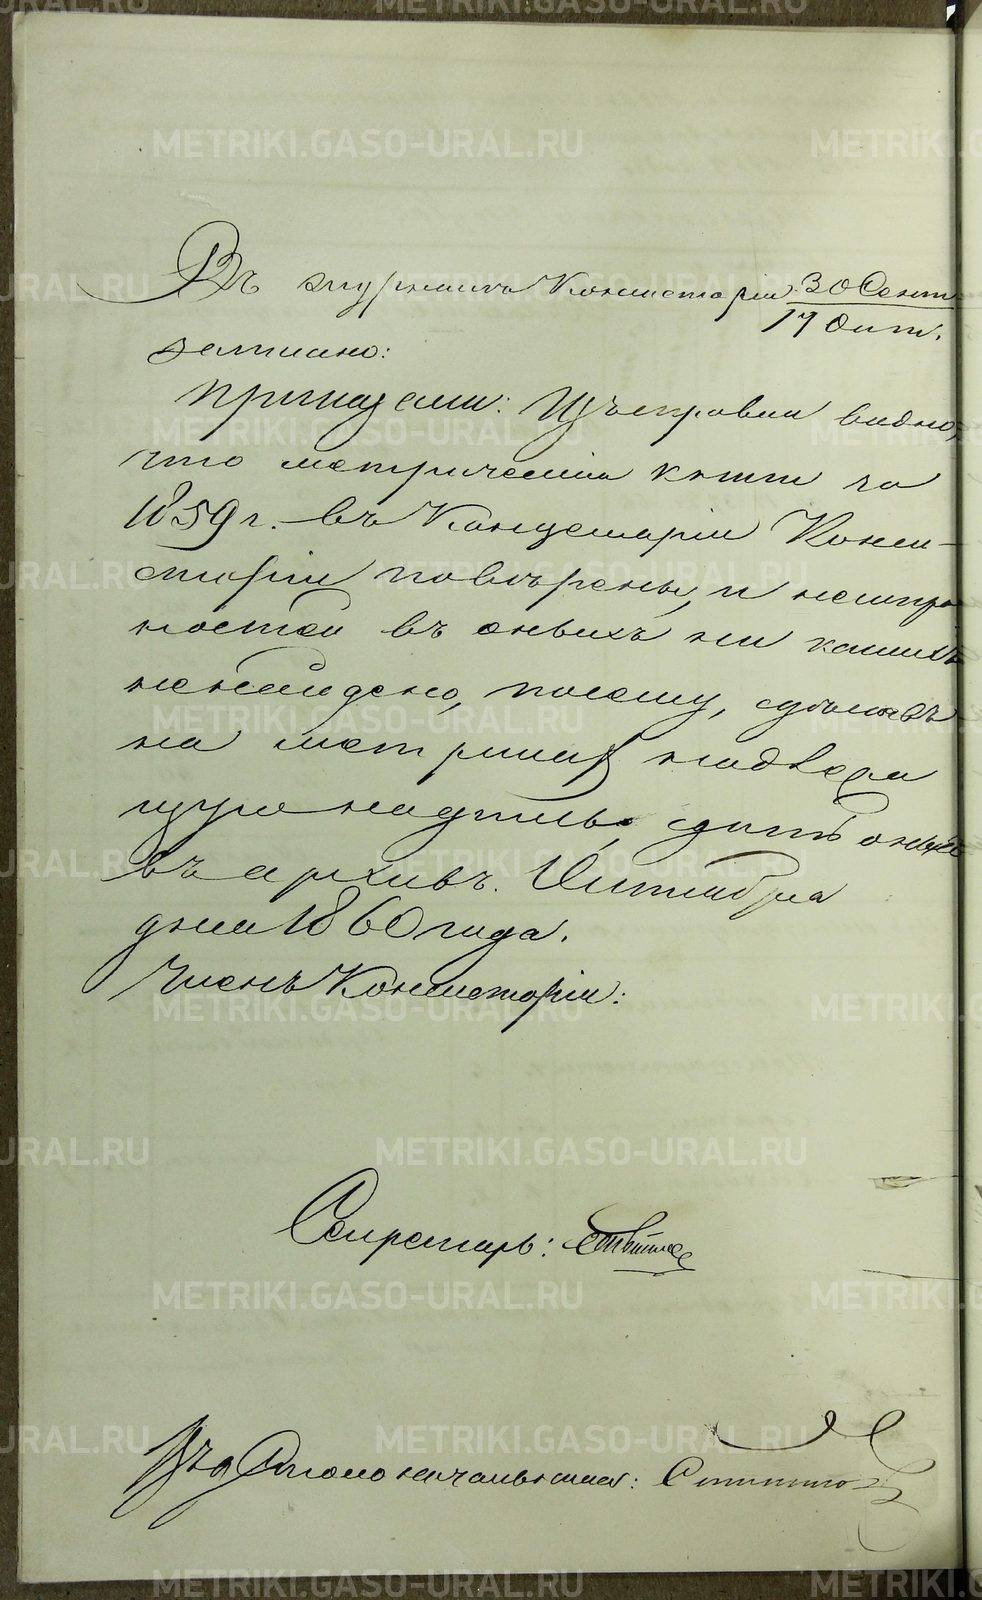 Въ журналѣ Консисторіи 30 Сент.
17 Окт.
записано:
Приказали: Изъ справки видно,
что метрическія книги за
1859 г. въ Канцеляріи Конси-
сторіи повѣрены, и неиспра
ностей въ оныхъ ни какихъ
ненайдено, посему, сдѣлавъ
на метрикахъ надлежа
щую надпись, сдать оныя
въ архивъ. Октября
дня 1860 года.
Членъ Консисторіи:
Секретарь:
Столоначальника:
METRIKI.GASO-URAL.RU